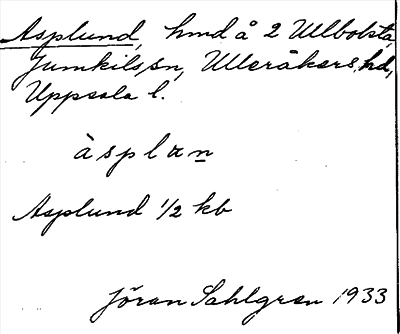 Asplund, hmd å 2 Ullbolsta,
Jumkils sn, Ulleråkers hd,
Uppsala l.
àsplan
Asplund 1/2 kb
Jöran Sahlgren 1933